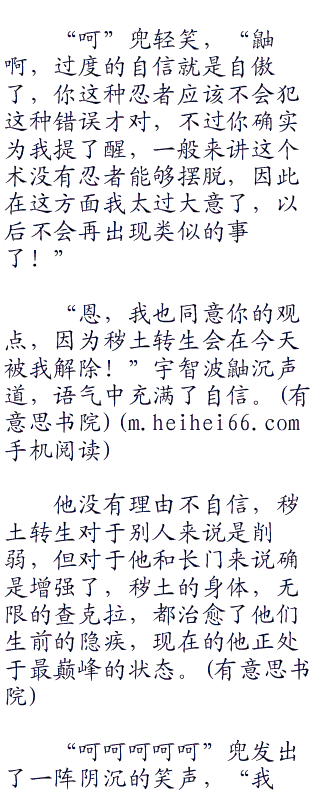 “呵”兜轻笑，“鼬
啊，过度的自信就是自傲
了，你这种忍者应该不会犯
这种错误才对，不过你确实
为我提了醒，一般来讲这个
术没有忍者能够摆脱，因此
在这方面我太过大意了，以
后不会再出现类似的事
了！”
“恩，我也同意你的观
点，因为秽土转生会在今天
被我解除！”宇智波鼬沉声
道，语气中充满了自信。(有
意思书院)(m.heihei66.com
手机阅读)
他没有理由不自信，秽
土转生对于别人来说是削
弱，但对于他和长门来说确
是增强了，秽土的身体，无
限的查克拉，都治愈了他们
生前的隐疾，现在的他正处
于最巅峰的状态。(有意思书
院)
“呵呵呵呵呵”兜发出
了一阵阴沉的笑声，“我